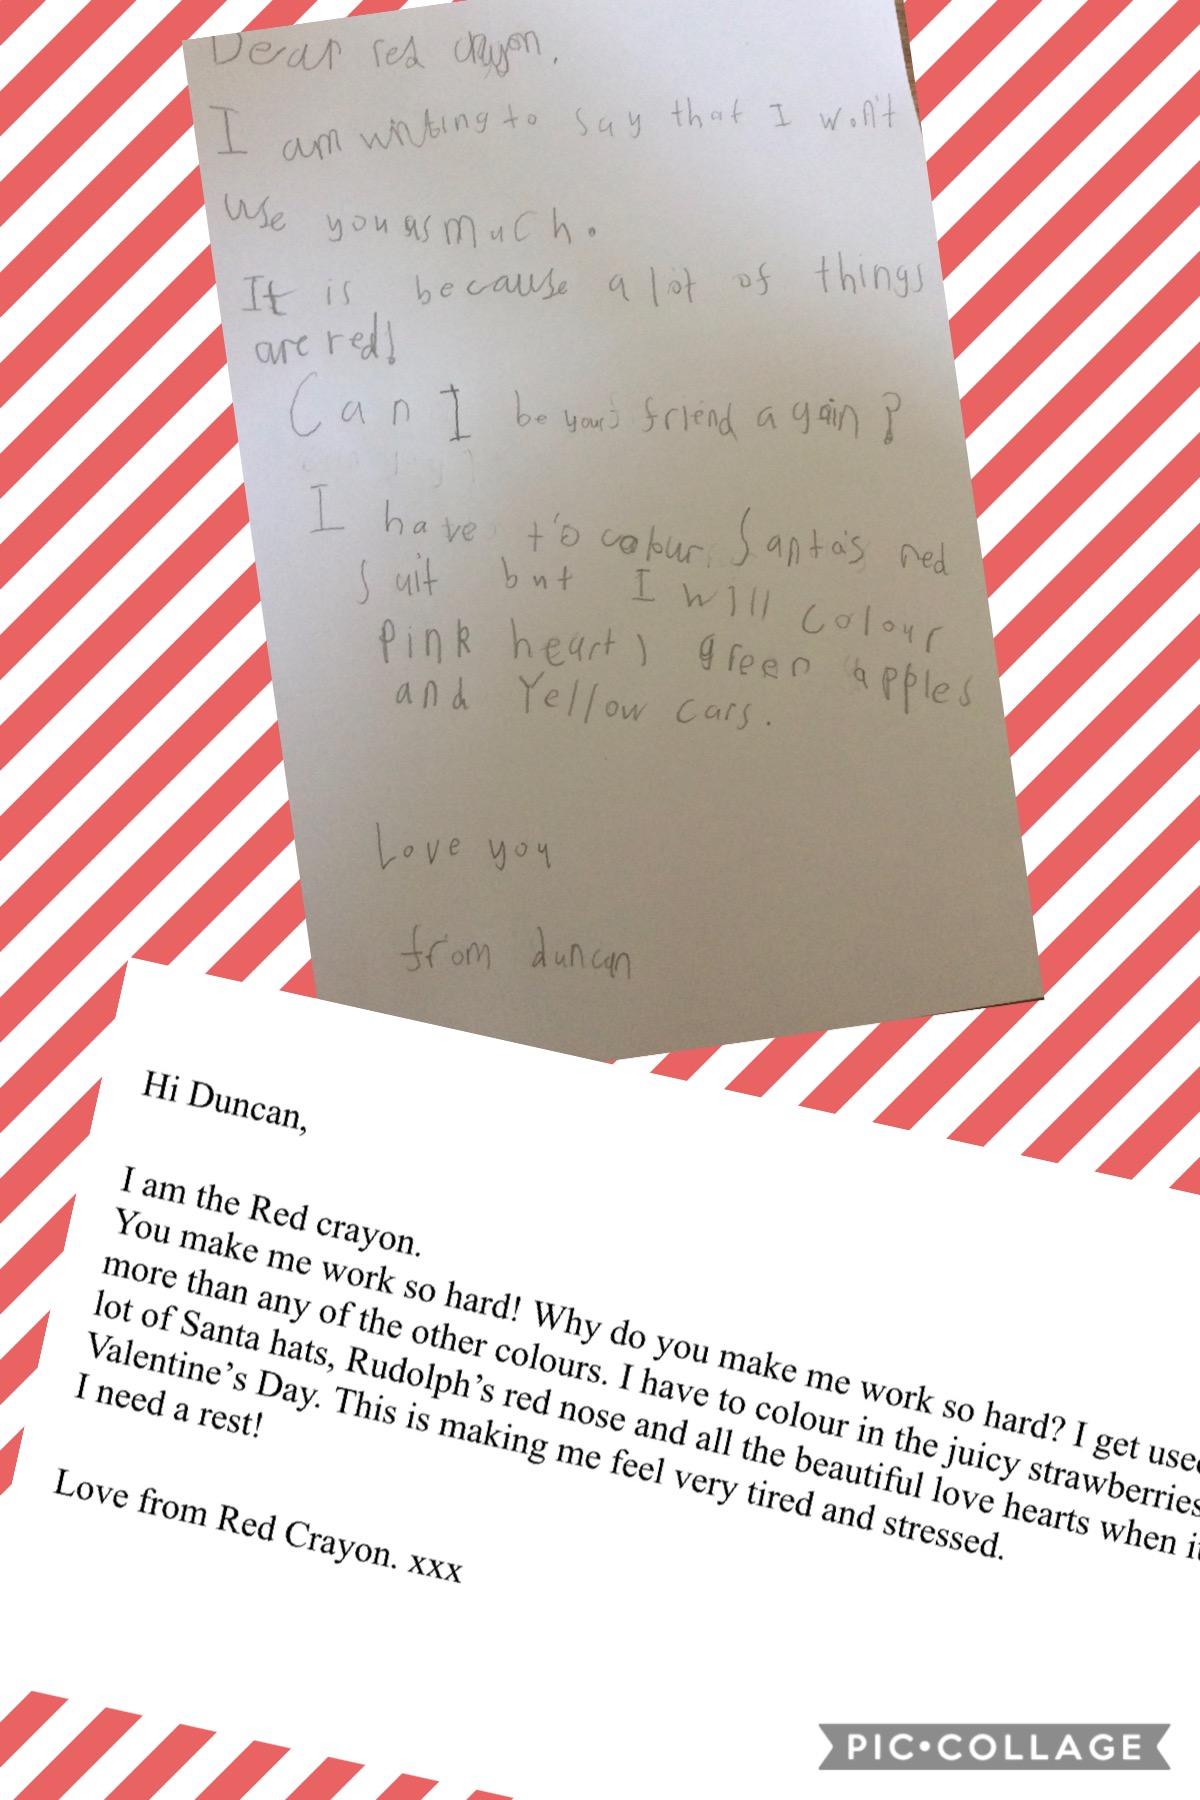 Dear red crayon.
I am writing to say that I won't
use you as much.
It is because a lot of things
are red!
Can I be your friend again?
I have to colour Santa's red
suit but I will colour
pink hearts green apples
and Yellow cars.
Love you
from duncan
Hi Duncan,
I am the Red crayon.
You make me work so hard! Why do you make me work so hard? I get used
more than any of the other colours. I have to colour in the juicy strawberries,
lot of Santa hats, Rudolph's red nose and all the beautiful love hearts when it
Valentine's Day. This is making me feel very tired and stressed.
I need a rest!
Love from Red Crayon. xxx
PIC•COLLAGE